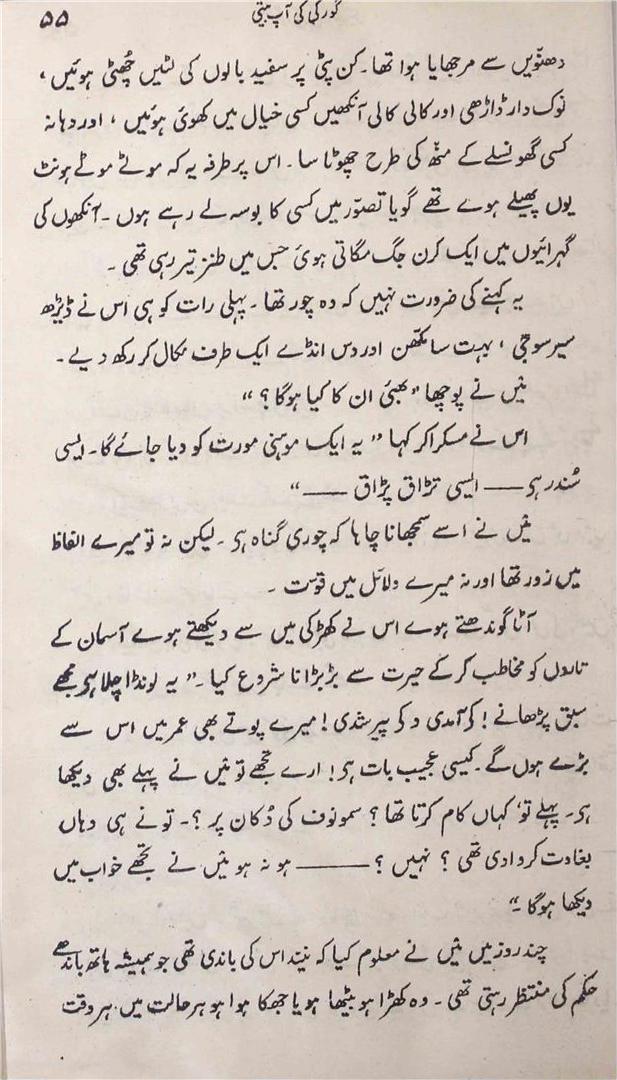 گورکی کی آپ بیتی ۵۵
دھنوّیں سے مرجھایا ہوا تھا۔ کن پٹی پر سفید بالوں کی لٹیں چھٹی ہوئیں،
نوک دار ڈاڑھی اور کالی کالی آنکھیں کسی خیال میں کھوئی ہوئیں، اور دہانہ
کسی گھونسلے کے منھ کی طرح چھوٹا سا۔ اس پر طرفہ یہ کہ موٹے موٹے ہونٹ
یوں پھیلے ہوے تھے گویا تصوّر میں کسی کا بوسہ لے رہے ہوں۔ آنکھوں کی
گہرائیوں میں ایک کرن جگ مگاتی ہوئی جس میں طنز تیر رہی تھی۔
یہ کہنے کی ضرورت نہیں کہ وہ چور تھا۔ پہلی رات کو ہی اس نے ڈیڑھ
سیر سوجی، بہت سا مکھن اور دس انڈے ایک طرف نکال کر رکھ دیے۔
میں نے پوچھا ”بھئی ان کا کیا ہوگا؟“
اس نے مسکرا کر کہا ”یہ ایک موہنی مورت کو دیا جائے گا۔ ایسی
سُندر ہی —— ایسی تڑاق پڑاق ——“
میں نے اسے سمجھانا چاہا کہ چوری گناہ ہی۔ لیکن نہ تو میرے الفاظ
میں زور تھا اور نہ میرے دلائل میں قوّت۔
آٹا گوندھتے ہوے اس نے کھڑکی میں سے دیکھتے ہوے آسمان کے
تاروں کو مخاطب کر کے حیرت سے بڑبڑانا شروع کیا۔ ”یہ لونڈا چلا ہی مجھے
سبق پڑھانے! کی آمدی و کی پیر شدی! میرے پوتے بھی عمر میں اس سے
بڑے ہوں گے۔ کیسی عجیب بات ہی! ارے تجھے تو میں نے پہلے بھی دیکھا
ہی۔ پہلے تو کہاں کام کرتا تھا؟ سمونوف کی دُکان پر؟۔ تو نے ہی وہاں
بغاوت کروادی تھی؟ نہیں؟ —— ہو نہ ہو میں نے تجھے خواب میں
دیکھا ہوگا۔“
چند روز میں میں نے معلوم کیا کہ نیند اس کی باندی تھی جو ہمیشہ ہاتھ باندھے
حکم کی منتظر رہتی تھی۔ وہ کھڑا ہو بیٹھا ہو یا جھکا ہوا ہو ہر حالت میں، ہر وقت